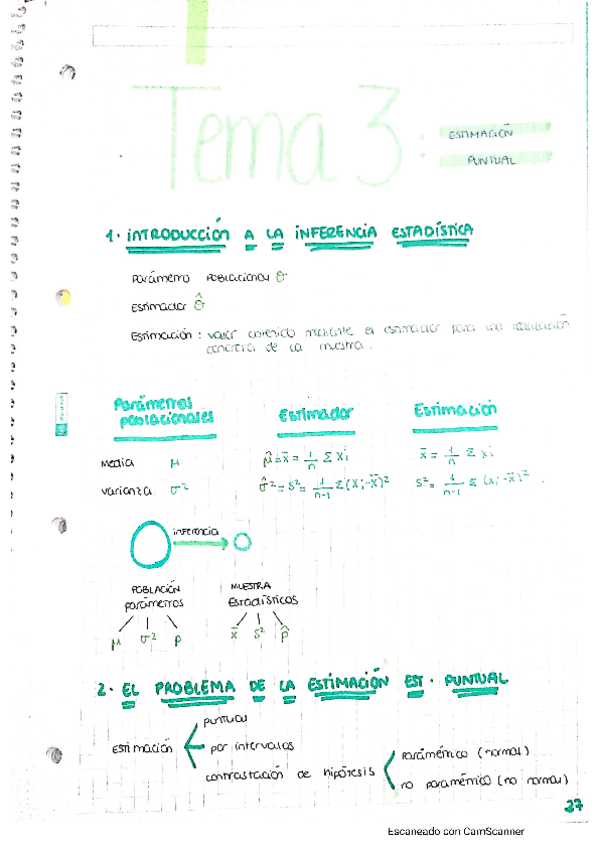 Tema 3
ESTIMACIÓN
PUNTUAL
1. INTRODUCCIÓN A LA INFERENCIA ESTADÍSTICA
Parámetro POBLACIONAL θ
ESTIMADOR θ̂
ESTIMACIÓN : valor obtenido mediante el estimador para una realización
concreta de la muestra.
Parámetros poblacionales Estimador Estimación
Media μ μ̂ = x̄ = 1/n Σ xi x̄ = 1/n Σ xi
varianza σ² σ̂² = S² = 1/n-1 Σ (xi - x̄)² S² = 1/n-1 Σ (xi - x̄)²
inferencia
POBLACIÓN MUESTRA
parámetros Estadísticos
μ σ² p x̄ S² p̂
2. EL PROBLEMA DE LA ESTIMACIÓN EST. PUNTUAL
puntual
estimación por intervalos
contrastación de hipótesis
paramétrico (normal)
no paramétrico (no normal)
27
Escaneado con CamScanner